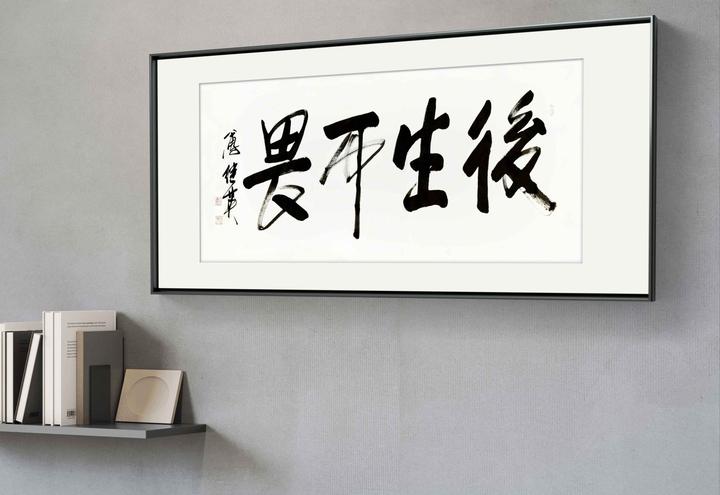 後生可畏